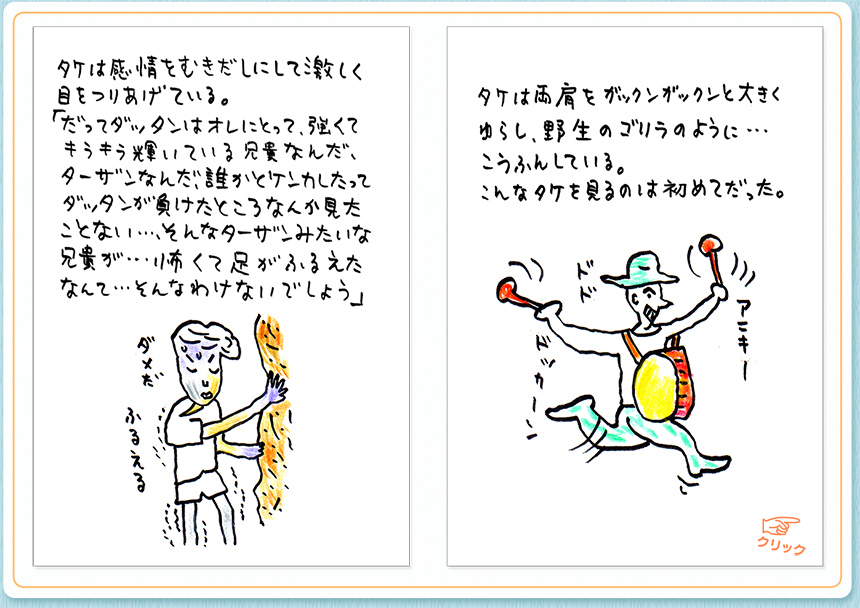 タケは感情をむきだしにして激しく
目をつりあげている。
「だってダッタンはオレにとって、強くて
キラキラ輝いている兄貴なんだ、
ターザンなんだ、誰かとケンカしたって
ダッタンが負けたところなんか見た
ことない…、そんなターザンみたいな
兄貴が…怖くて足がふるえた
なんて…そんなわけないでしょう」
ダメだ
ふるえる
タケは両肩をガックンガックンと大きく
ゆらし、野生のゴリラのように…
こうふんしている。
こんなタケを見るのは初めてだった。
ドド
ドッカーン
アニキー
クリック